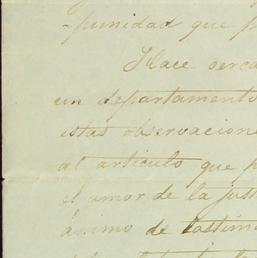 -punidad que p
Hace cerca
un departamento
estas observacione
al articulo que p
el amor de la just
ánimo de lastim